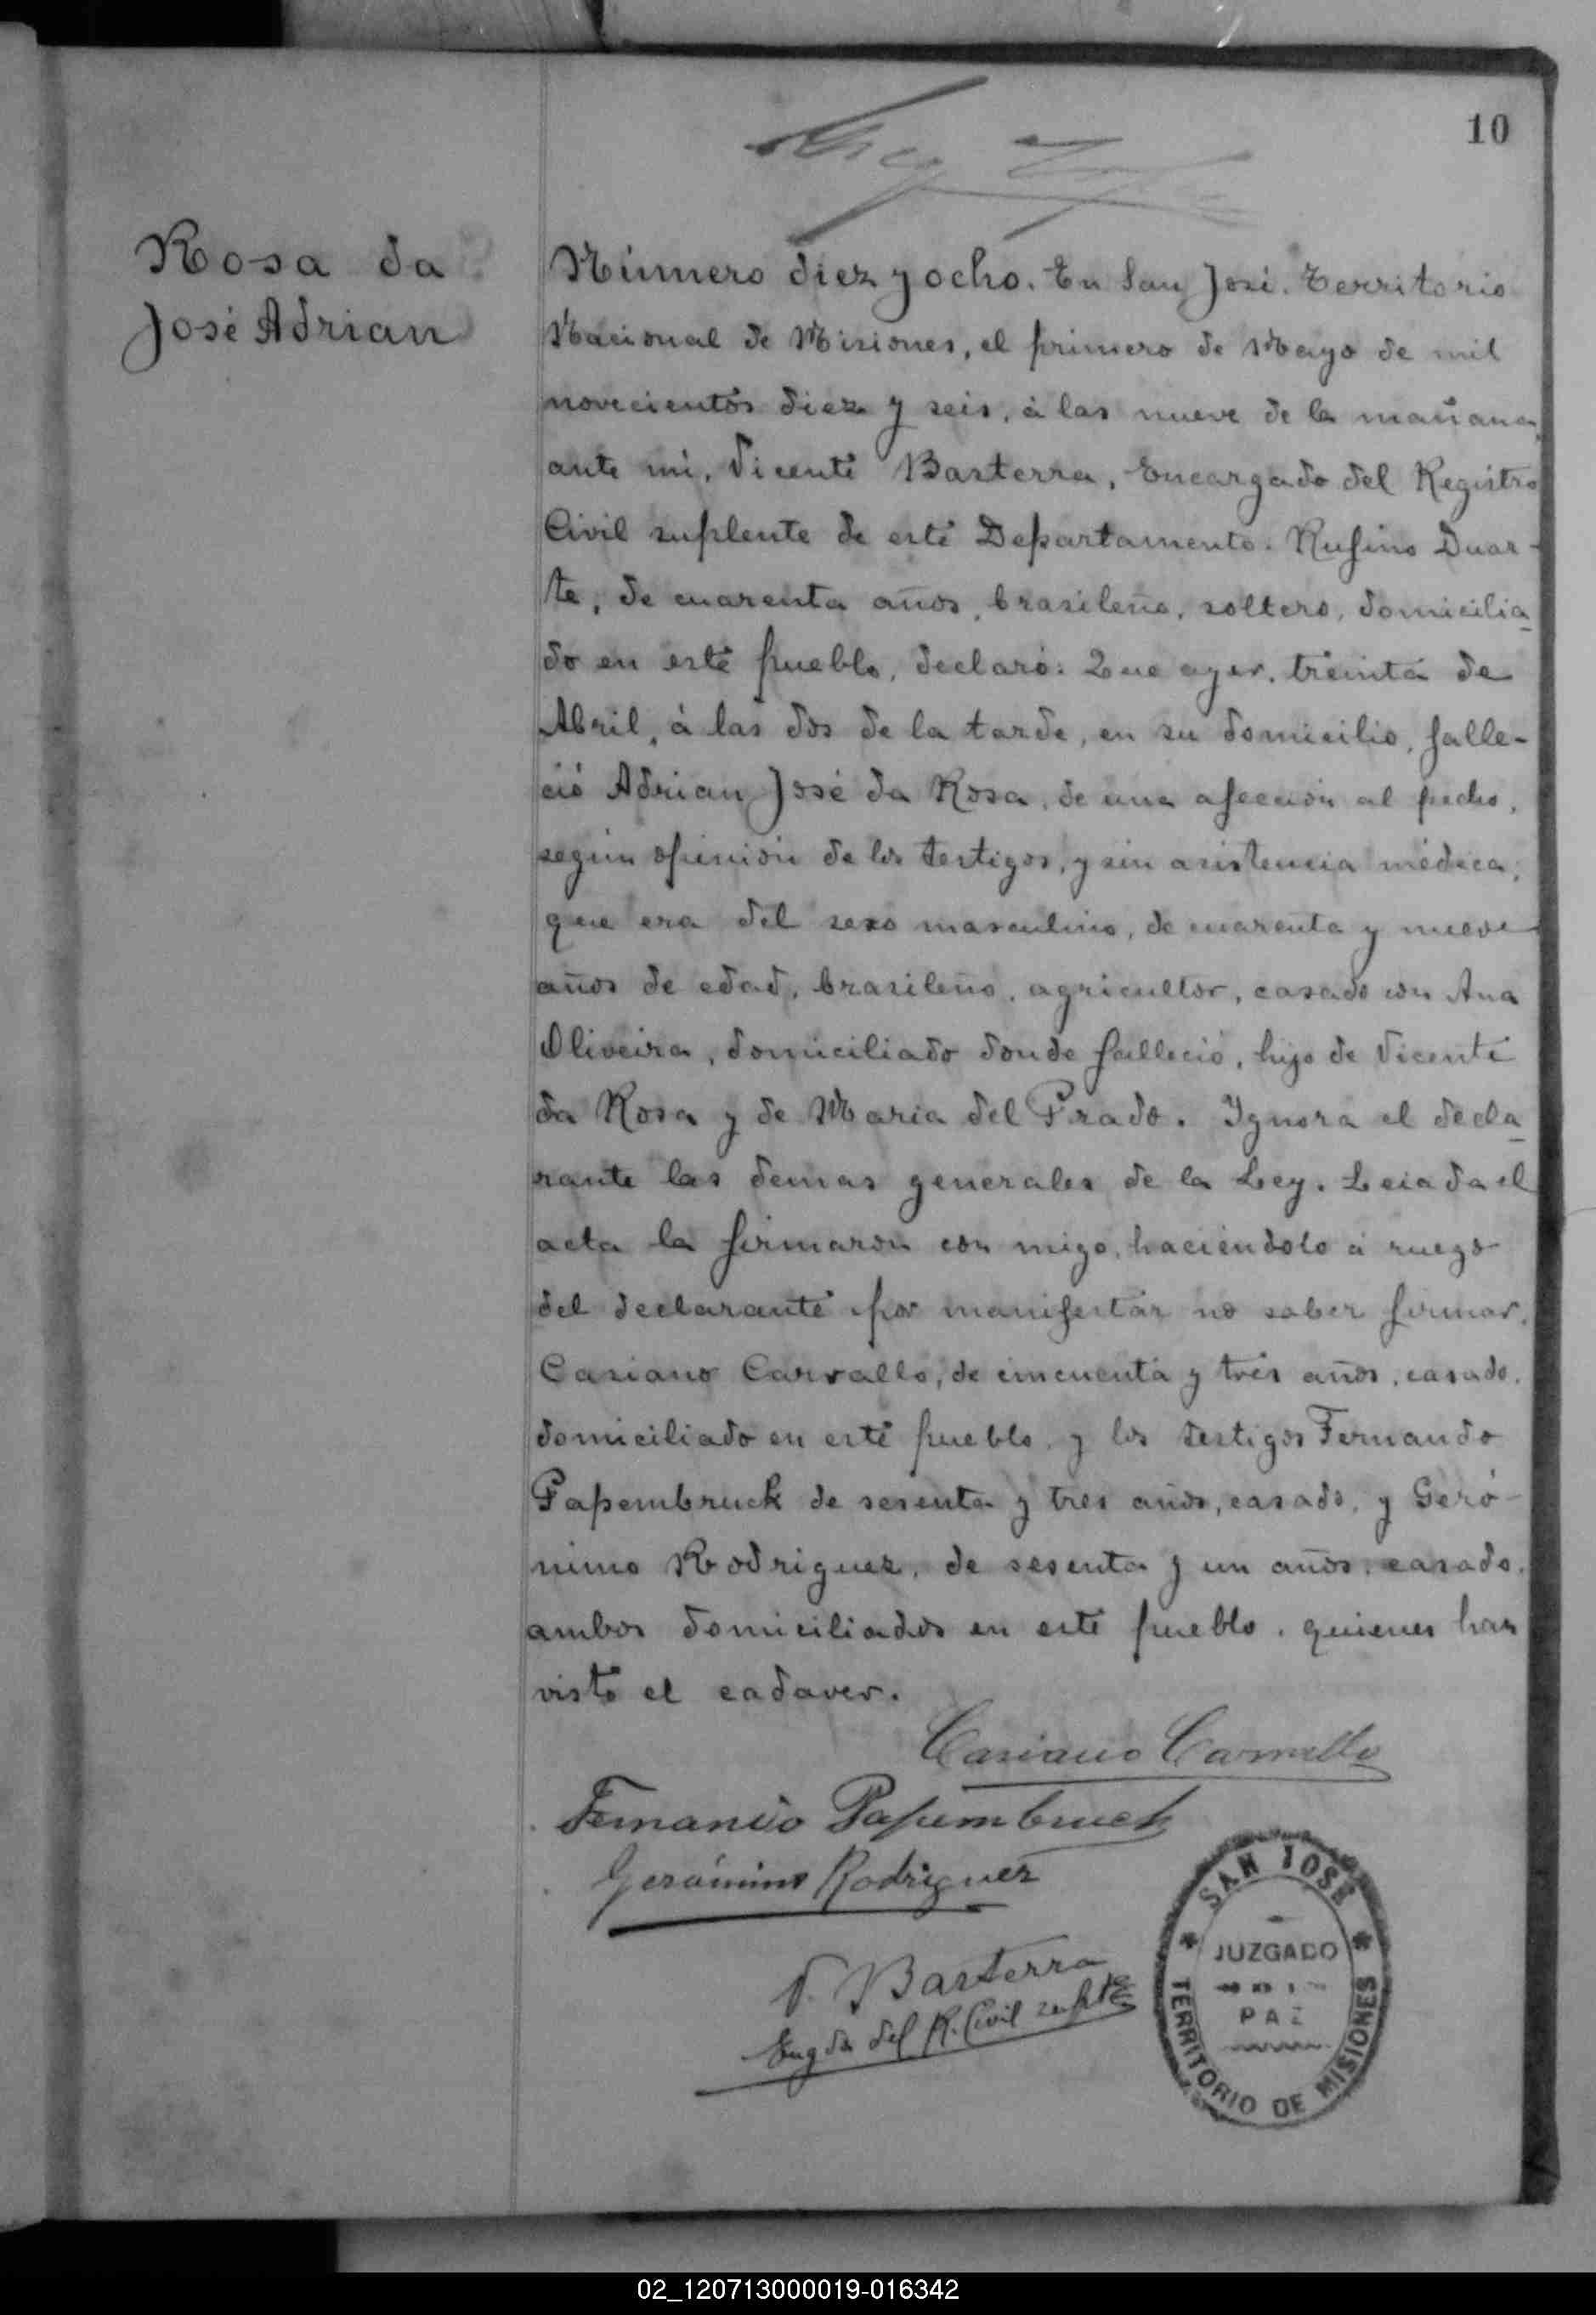 10
Rosa da
José Adrian
Número diez y ocho. En San José. Territorio
Nacional de Misiones, el primero de Mayo de mil
novecientos diez y seis, á las nueve de la mañana,
ante mi, Vicente Basterra, Encargado del Registro
Civil suplente de este Departamento. Rufino Duar-
te, de cuarenta años, brasileño, soltero, domicilia-
do en este pueblo, declaró: Que ayer, treinta de
Abril, á las dos de la tarde, en su domicilio, falle-
ció Adrian José da Rosa, de una afección al pecho,
según opinión de los testigos, y sin asistencia médica;
que era del sexo masculino, de cuarenta y nueve
años de edad, brasileño, agricultor, casado con Ana
Oliveira, domiciliado donde falleció, hijo de Vicente
da Rosa y de Maria del Prado. Ignora el decla-
rante las demas generales de la Ley. Leiada el
acta la firmaron con migo, haciéndolo á ruego
del declarante por manifestar no saber firmar,
Casiano Carvallo, de cincuenta y tres años, casado,
domiciliado en este pueblo, y los testigos Fernando
Papembruck de sesenta y tres años, casado, y Geró-
nimo Rodriguez, de sesenta y un años, casado,
ambos domiciliados en este pueblo, quienes han
visto el cadaver.
Casiano Carvallo
Fernando Papembruck
Gerónimo Rodriguez
V. Basterra
Engdo del R. Civil suplte
SAN JOSÉ
JUZGADO
DE
PAZ
TERRITORIO DE MISIONES
02_120713000019-016342